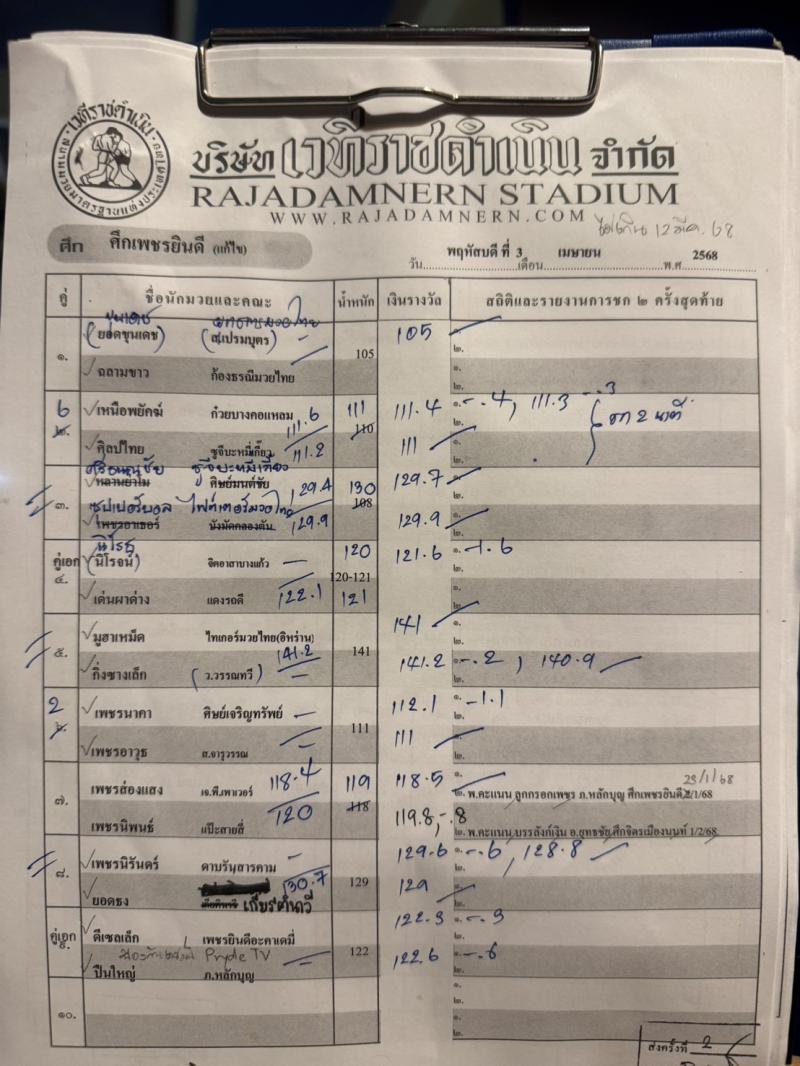 เวทีราชดำเนิน
สนามมวยมาตรฐานแห่งประเทศไทย
บริษัท เวทีราชดำเนิน จำกัด
RAJADAMNERN STADIUM
WWW.RAJADAMNERN.COM
ศึก ศึกเพชรยินดี (แก้ไข)
วัน พฤหัสบดี ที่ 3 เดือน เมษายน พ.ศ 2568
คู่ ชื่อนักมวยและคณะ น้ำหนัก เงินรางวัล สถิติและรายงานการชก ๒ ครั้งสุดท้าย
(ยอดขุนเดช) (ส.เปรมบุตร) 105 ๒.
๑. 105
ฉลามขาว ก้องธรณีมวยไทย ๑. ๒.
6 เหนือพยัคฆ์ ก๋วยบางคอแหลม 111.6 111 111.4 ๑. -.4, 111.3 -.3
๒. 110 ชก 2 นาที
ศิลปไทย ชูจีบะหมี่เกี๊ยว 111.2 111 ๑.
ชูจีบะหมี่เกี๊ยว
หลานยาโม ศิษย์มนต์ชัย 129.4 130 129.7 ๒.
๓. 108
ซุปเปอร์บอล ไฟต์เตอร์มวยไทย
เพชรอาเธอร์ นังมัดคลองตัน 129.9 129.9 ๑. ๒.
นิโรธ
คู่เอก (นิโรจน์) จิตอาสาบางแก้ว 120 121.6 ๑. -1.6
๔. 120-121 ๒.
เด่นผาด่าง แดงรถดี 122.1 121 ๑. ๒.
มูฮาเหม็ด ไทเกอร์มวยไทย(อิหร่าน) 141 ๒.
๕. 141.2 141
กิ่งซางเล็ก (ว.วรรณทวี) 141.2 ๑. -.2, 140.9 ๒.
2 เพชรนาคา ศิษย์เจริญทรัพย์ 112.1 ๑. -1.1
๖. 111 ๒.
เพชรอาวุธ ส.จารุวรรณ 111 ๑. ๒.
23/1/68
เพชรส่องแสง เจ.พี.เพาเวอร์ 118.4 119 118.5 ๑.
๗. 118 ๒. พ.คะแนน ลูกกรอกเพชร ภ.หลักบุญ ศึกเพชรยินดี 2/1/68
เพชรนิพนธ์ แป๊ะสายสี่ 120 119.8, -.8
๒. พ.คะแนน บรรลังก์เงิน อ.ยุทธชัย ศึกจิตรเมืองนนท์ 1/2/68
เพชรนิรันดร์ ดาบรันสารคาม 129.6 ๑. -.6, 128.8
๘. 130.7 129 ๒.
ยอดธง เกียรตินาวี 129 ๑. ๒.
คู่เอก ดีเซลเล็ก เพชรยินดีอะคาเดมี่ 122.3 ๑. -.3
๙. Pryde TV 122 ๒.
ปืนใหญ่ ภ.หลักบุญ 122.6 ๑. -.6 ๒.
๑๐. ๑. ๒.
๑. ๒.
ส่งครั้งที่ 2